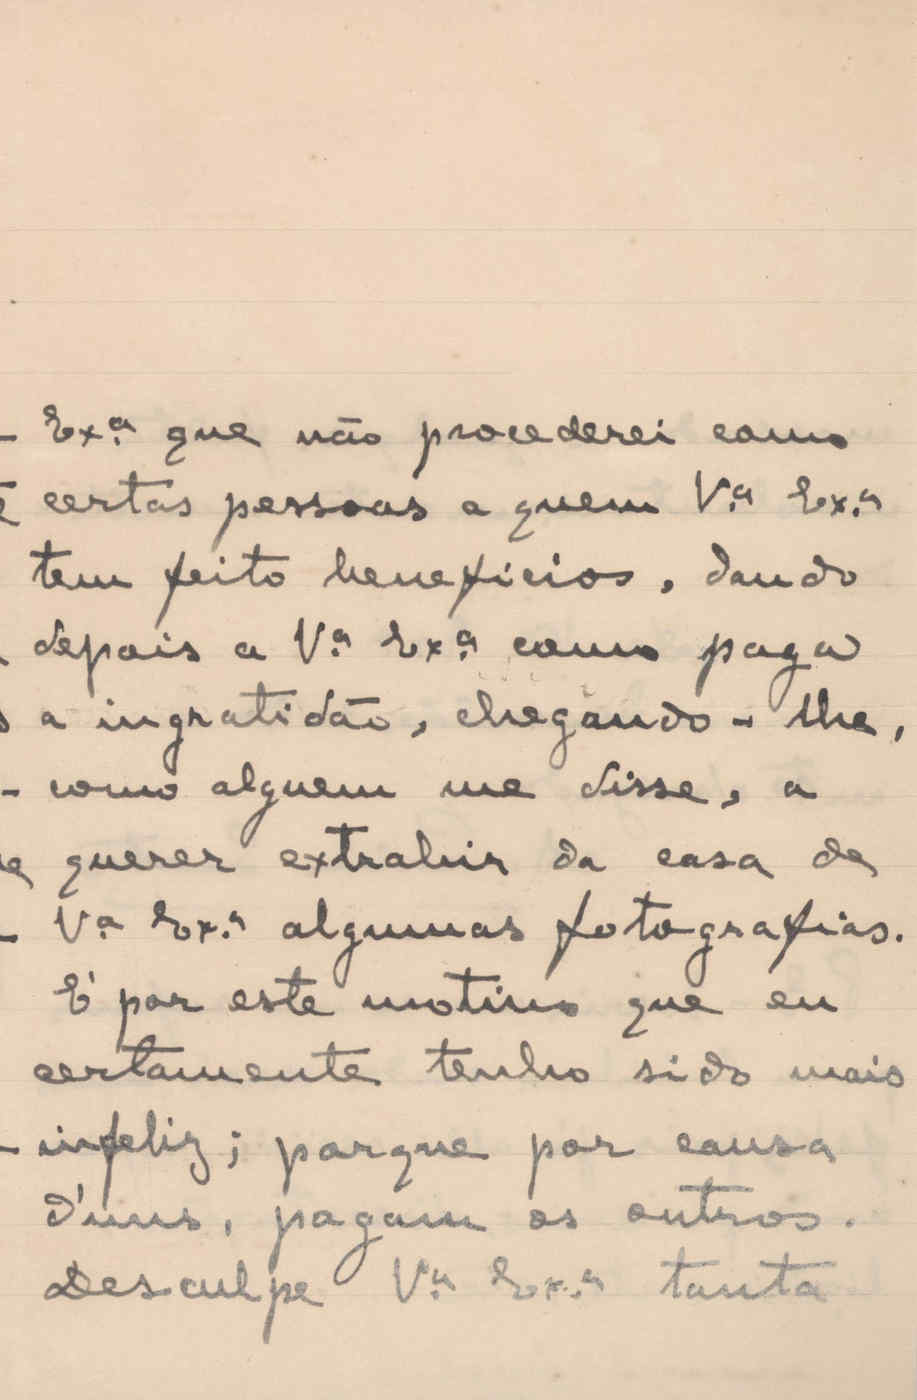 Exª que não procederei como
certas pessoas a quem Vª Exª
tem feito beneficios, dando
depois a Vª Exª como paga
a ingratidão, chegando-lhe,
como alguem me disse, a
querer extrahir da casa de
Vª Exª algumas fotografias.
E' por este motivo que eu
certamente tenho sido mais
infeliz; porque por causa
d'uns, pagam os outros.
Desculpe Vª Exª tanta